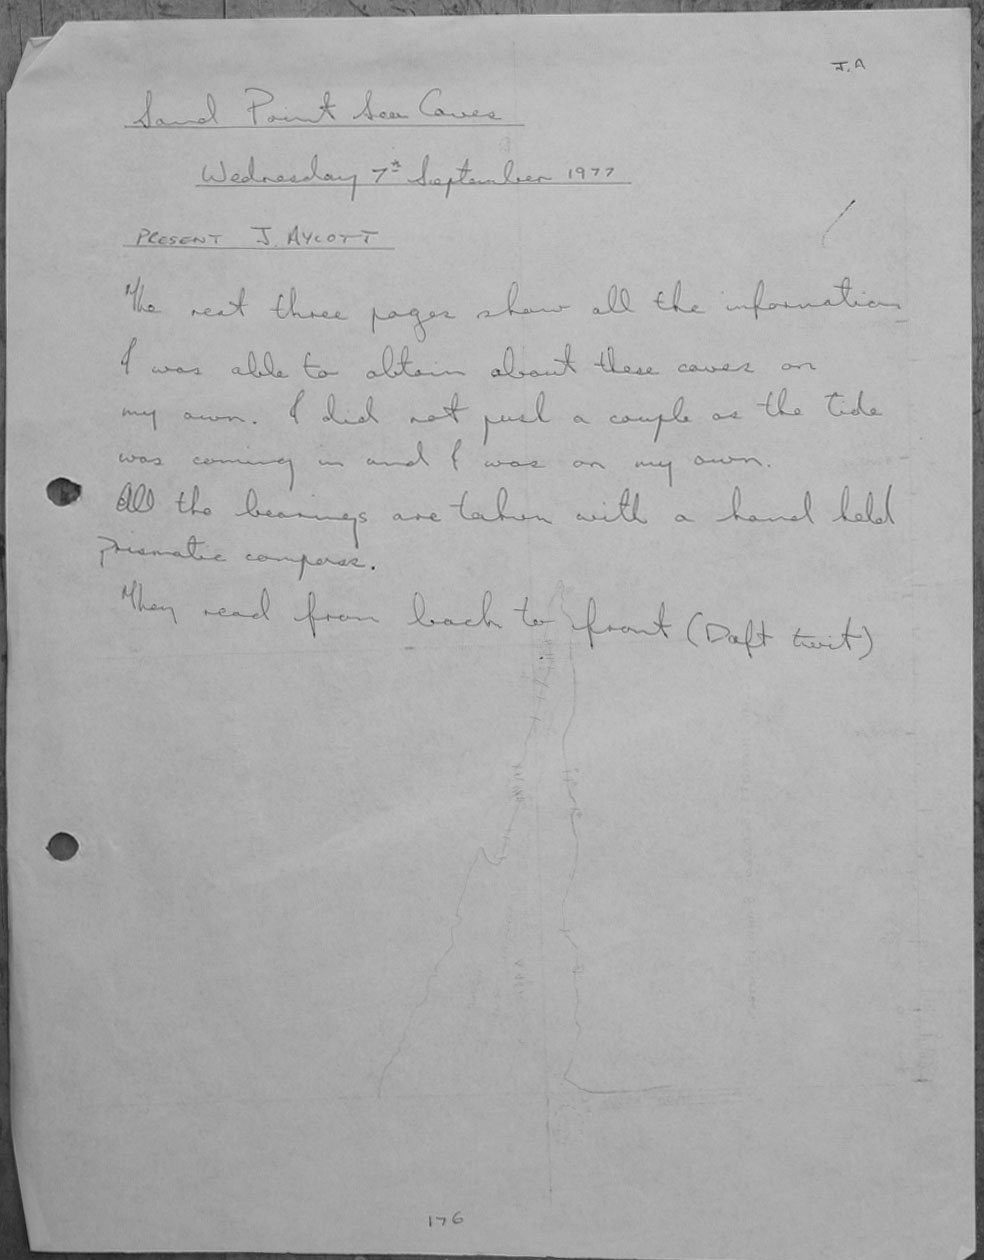 J.A
Sand Point Sea Caves
Wednesday 7th September 1977
PRESENT J. AYCOTT
The next three pages show all the information
I was able to obtain about these caves on
my own. I did not push a couple as the tide
was coming in and I was on my own.
All the bearings are taken with a hand held
prismatic compass.
They read from back to front (Daft twit)
176